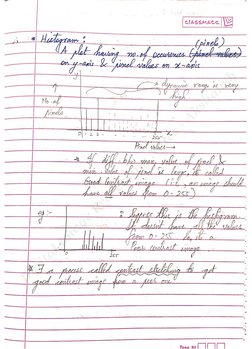 classmate
* Histogram :
(pixels)
A plot having no. of occurences (pixel values)
on y-axis & pixel values on x-axis
dynamic range is very
high
No. of
pixels
255
Pixel values →
* If diff. b/w max. value of pixel &
min value of pixel is large, it called
Good Contrast image (i.e., an image should
have all values from 0-255)
eg :-
: Suppose this is the histogram
It doesnt have all the values
from 0-255 So, its a
Poor contrast image
255
* process called contrast stretching to get
good contrast image from a poor one.